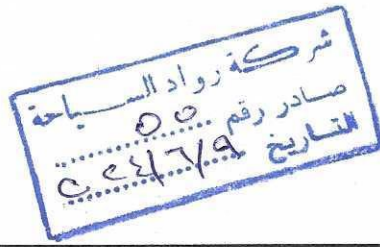 شركة رواد السياحة
صادر رقم ٥٥
التاريخ ٢٠٢٤/٦/٩